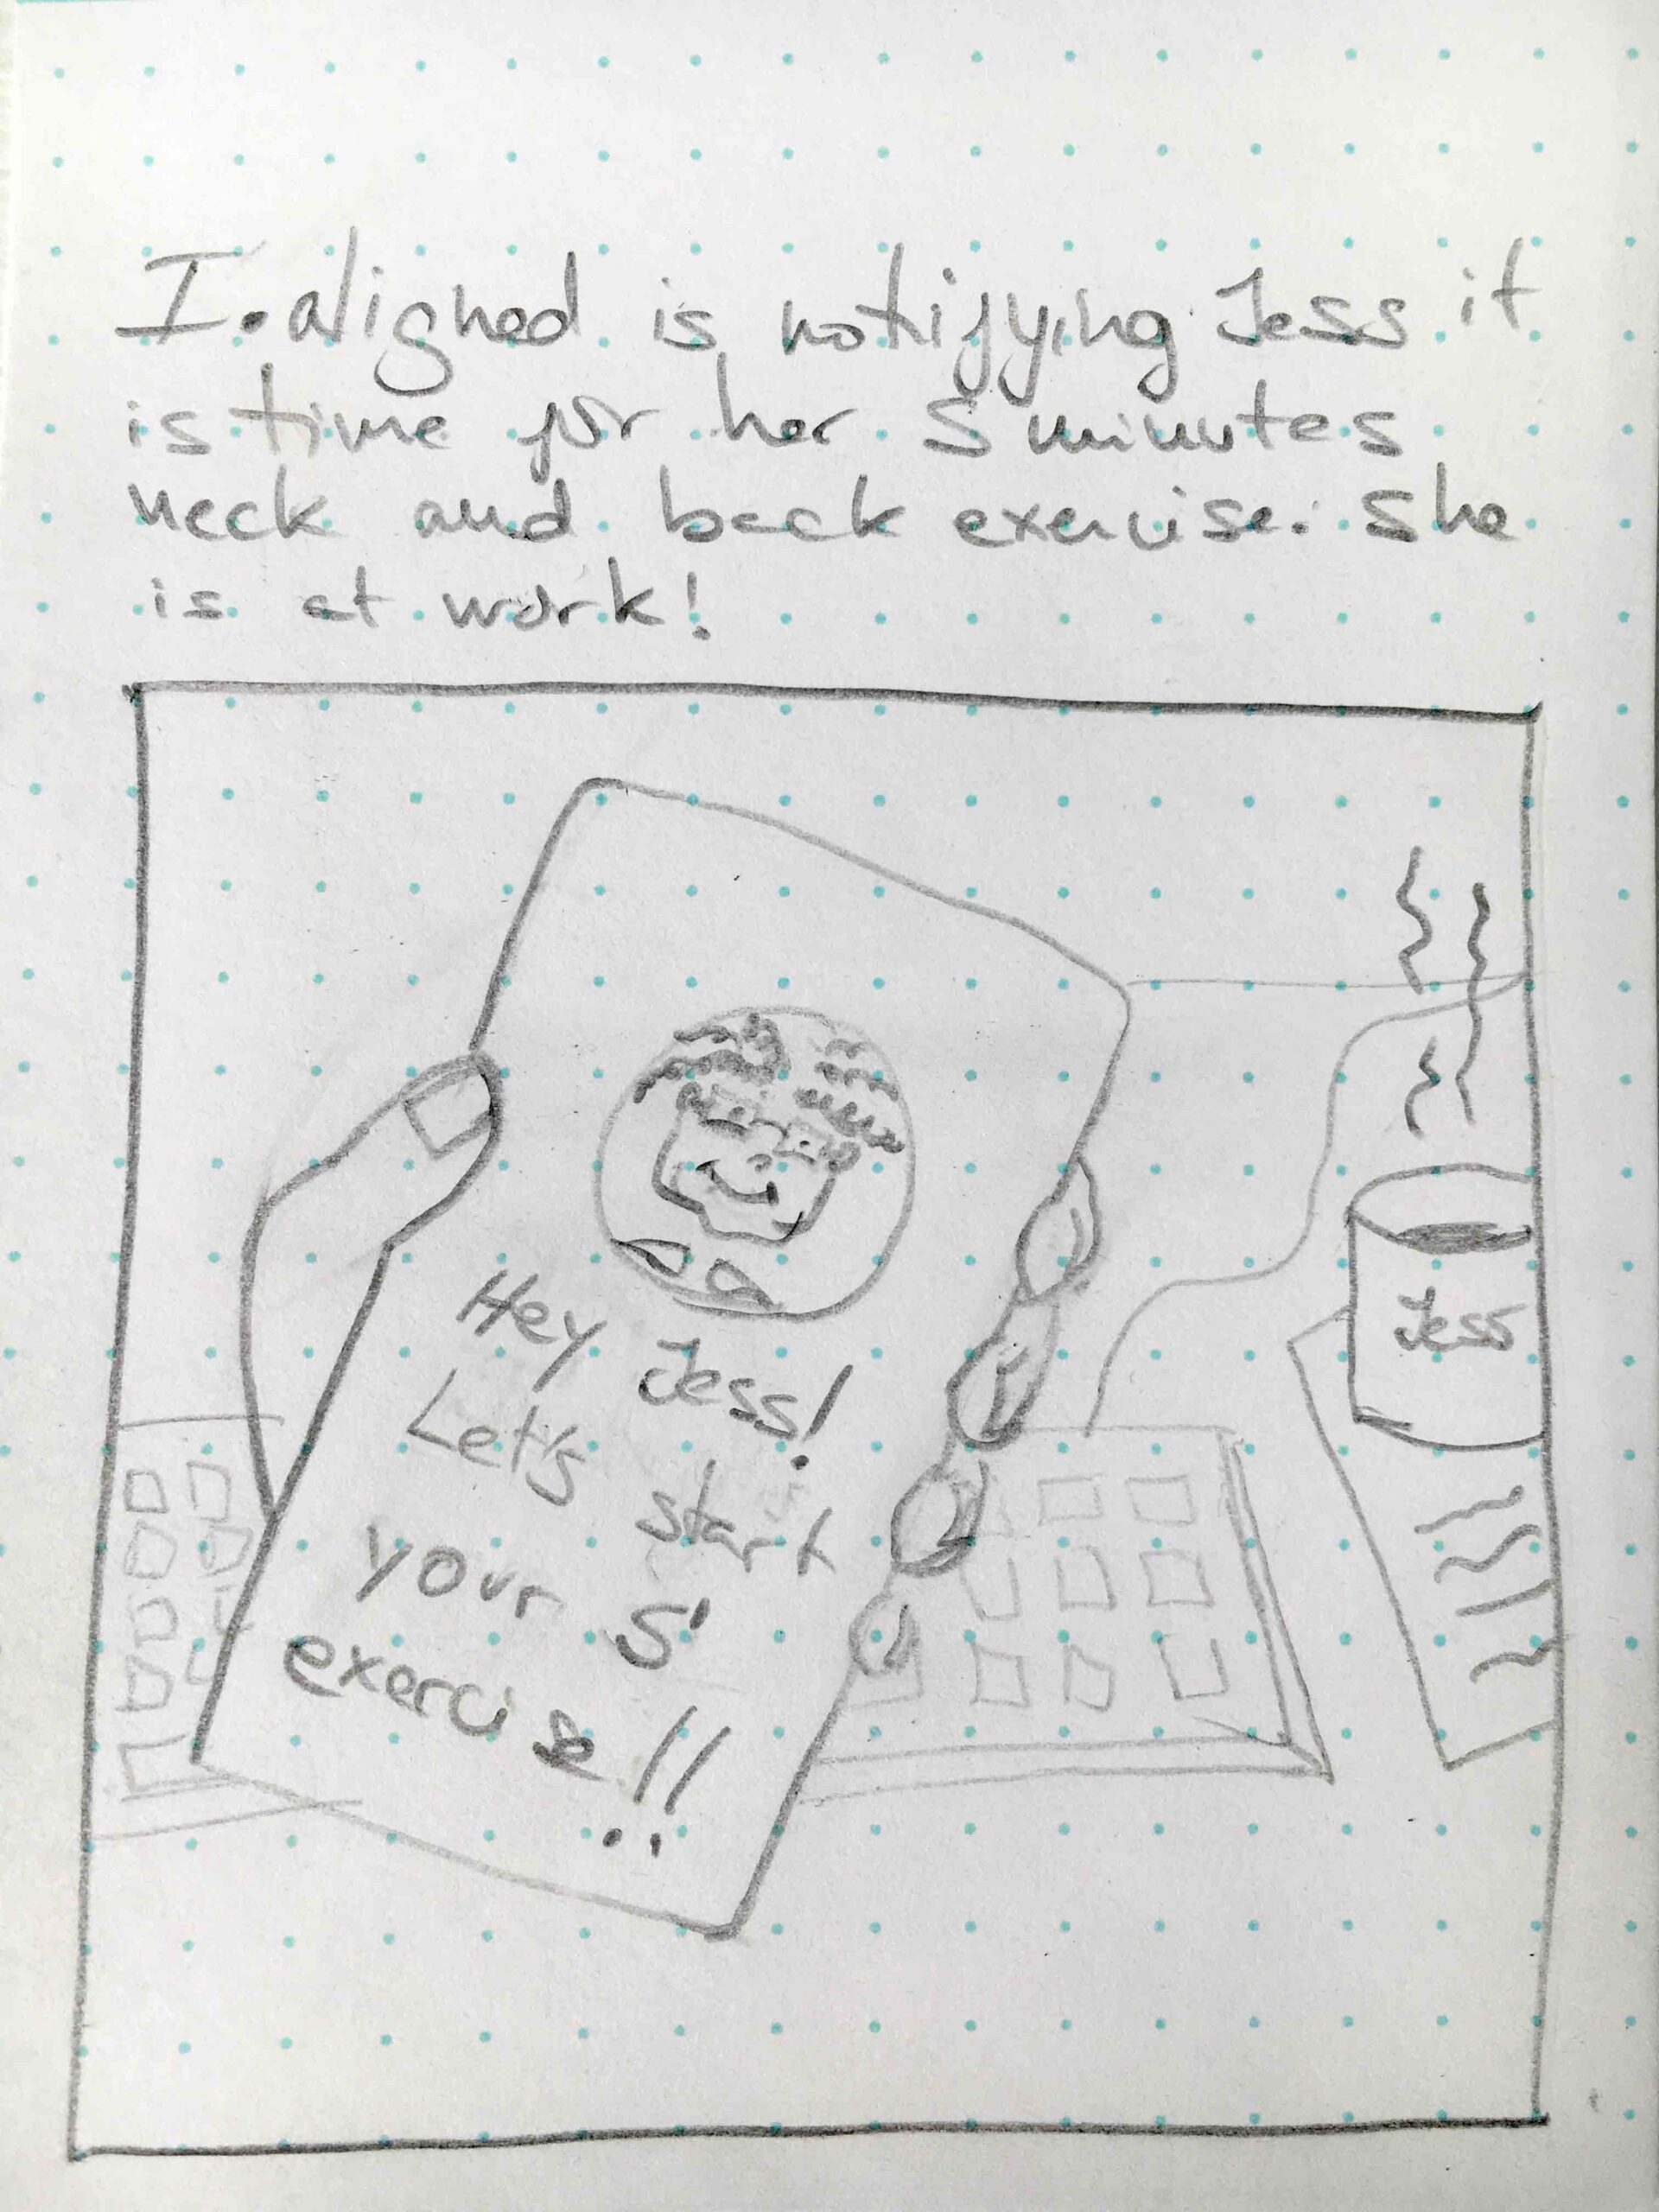 I.aligned is notifying Jess it
is time for her 5 minutes
neck and back exercise. She
is at work!
Hey Jess!
Let's start
your 5'
exercise!!
Jess